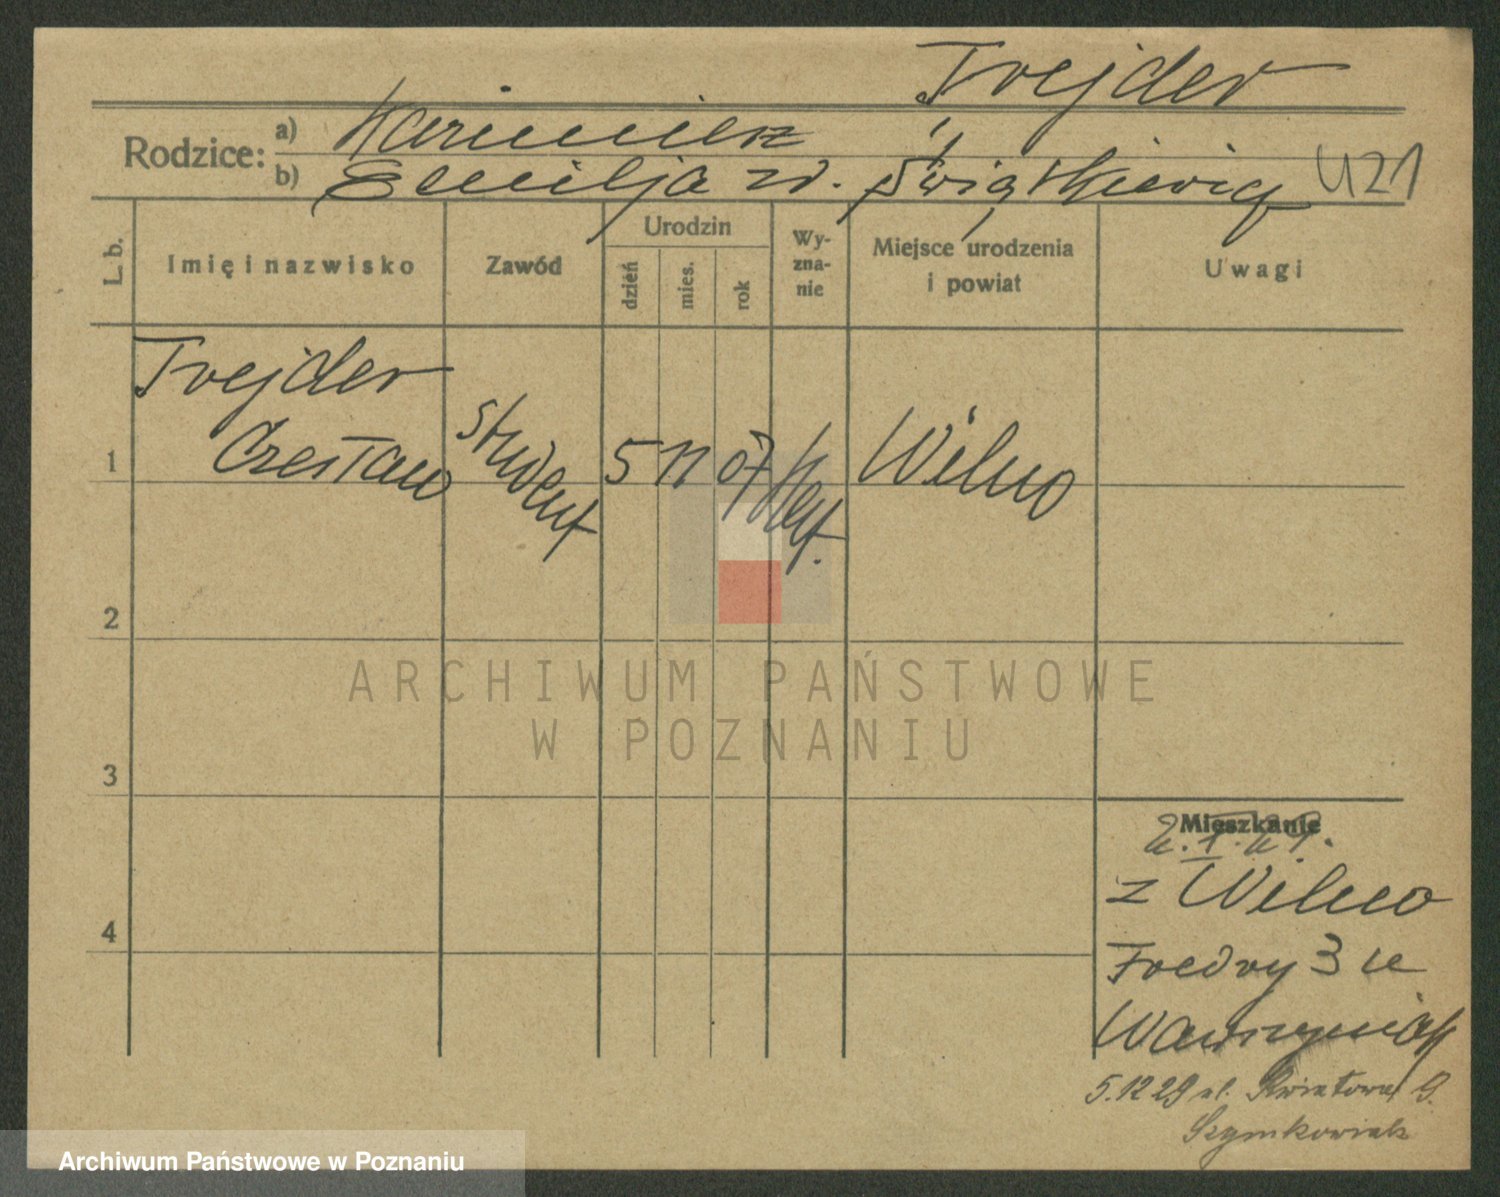 Trejder
Rodzice: a) Kazimierz
b) Emilja zd. Świątkiewicz U21
L. b. Imię i nazwisko Zawód Urodzin dzień mies. rok Wyznanie Miejsce urodzenia i powiat Uwagi
Trejder
1 Czesław student 5 11 07 Wilno
2
3
4
ARCHIWUM PAŃSTWOWE
W POZNANIU
Mieszkanie
z Wilno
Fredry 3 u
Wawrzyniak
5.12 29 ul. Kwiatowa 9.
Szymkowiak
Archiwum Państwowe w Poznaniu